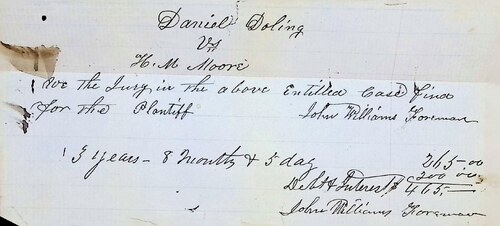 Daniel Doling
Vs
H. M Moore
We the Jury in the above Entitled Case find
for the Plantiff John Williams Foreman
3 years - 8 months & 5 day 265-00
200 00
Debt & Interest $ 465.-
John Williams Foreman